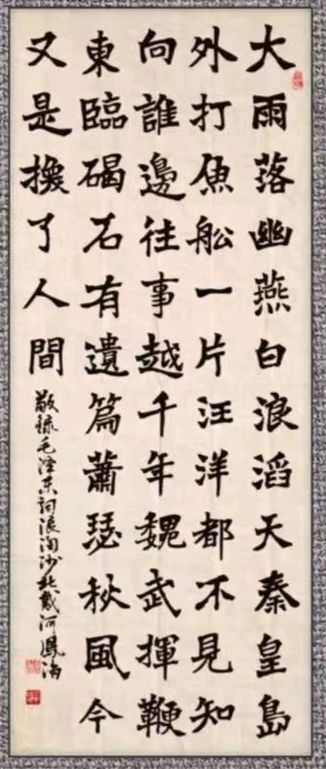 大雨落幽燕白浪滔天秦皇島
外打魚船一片汪洋都不見知
向誰邊往事越千年魏武揮鞭
東臨碣石有遺篇蕭瑟秋風今
又是換了人間
敬錄毛澤东詞浪淘沙北戴河